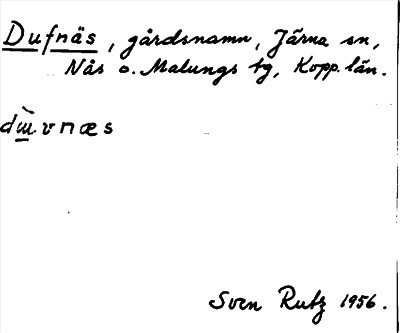 Dufnäs, gårdsnamn, Järna sn,
Nås o. Malungs tg, Kopp. län.
dɯ̀vnæs
Sven Rutz 1956.